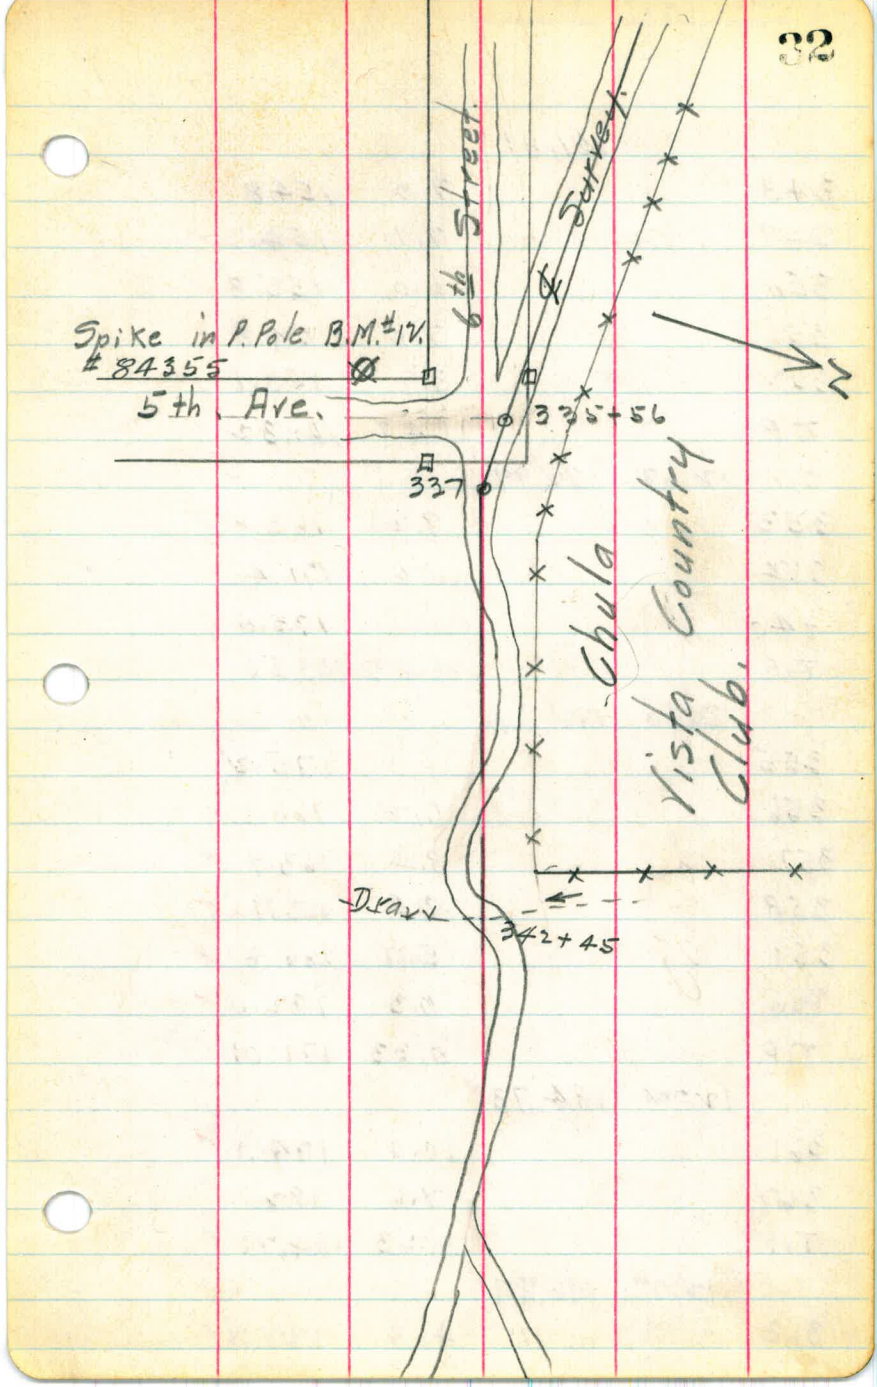 32
6th Street.
℄ Survey.
Spike in P. Pole B.M.#12.
# 84355
5th. Ave.
335+56
337
N
Chula
Vista Country
Club.
Draw
342+45